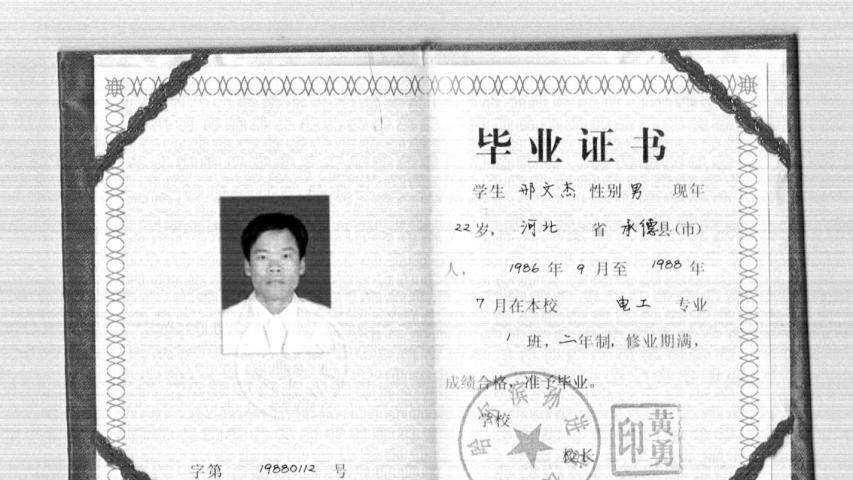 毕业证书
学生 邢文杰 性别 男 现年
22 岁, 河北 省 承德县(市)
人, 1986 年 9 月至 1988 年
7 月在本校 电工 专业
1 班, 二年制, 修业期满,
成绩合格, 准予毕业。
学校
校长
黄勇印
字第 19880112 号